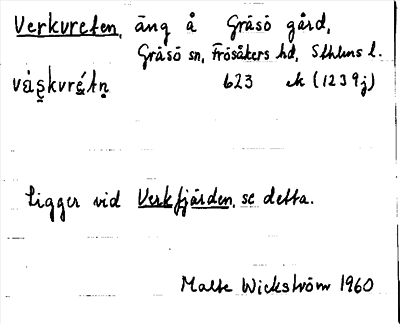 Verkvreten, äng å Gräsö gård,
Gräsö sn, Frösåkers hd, Sthlms l.
623 ek (1239j)
Ligger vid Verkfjärden, se detta.
Malte Wickström 1960